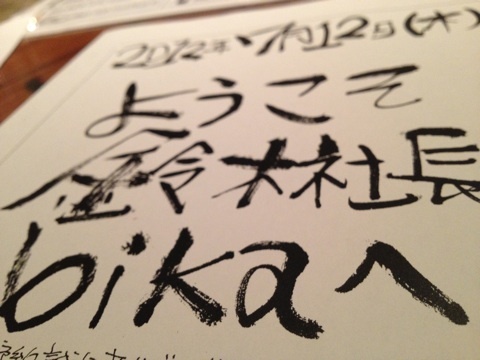 2012年7月12日(木)
ようこそ
鈴木社長
bikaへ